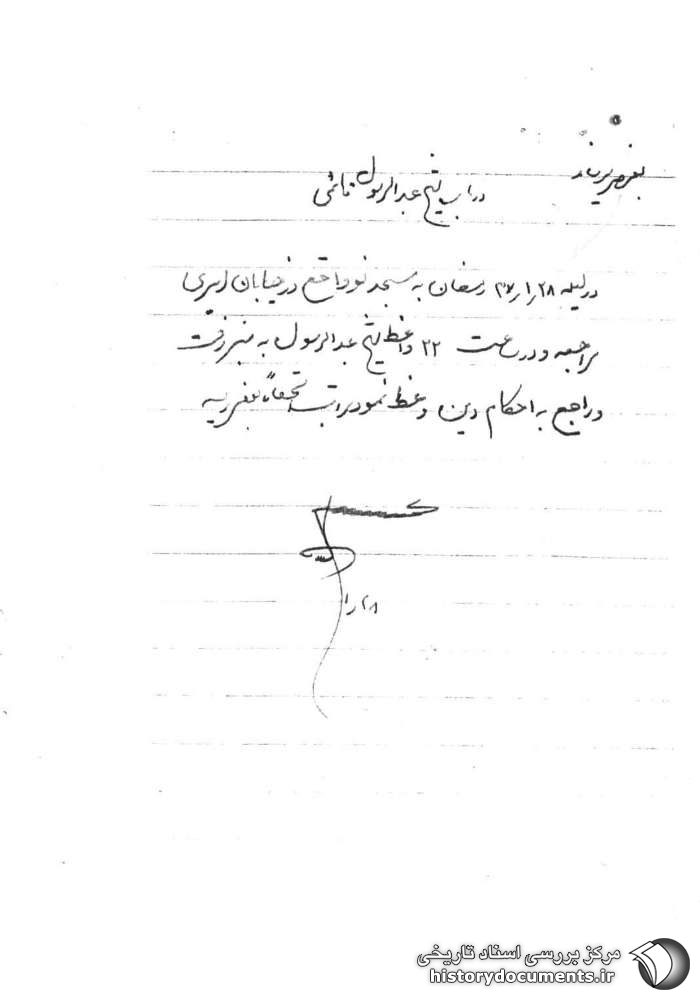 بعرض میرساند
درباره شیخ عبدالرسول قائمی
در لیله ۲۸/۱/۳۷ رمضان به مسجد نو واقع در خیابان امیری
مراجعه و در ساعت ۲۲ واعظ شیخ عبدالرسول به منبر رفت
و راجع به احکام دین وعظ نمود مراتب استحضاراً بعرض رسید
۲۸/۱
مرکز بررسی اسناد تاریخی
historydocuments.ir